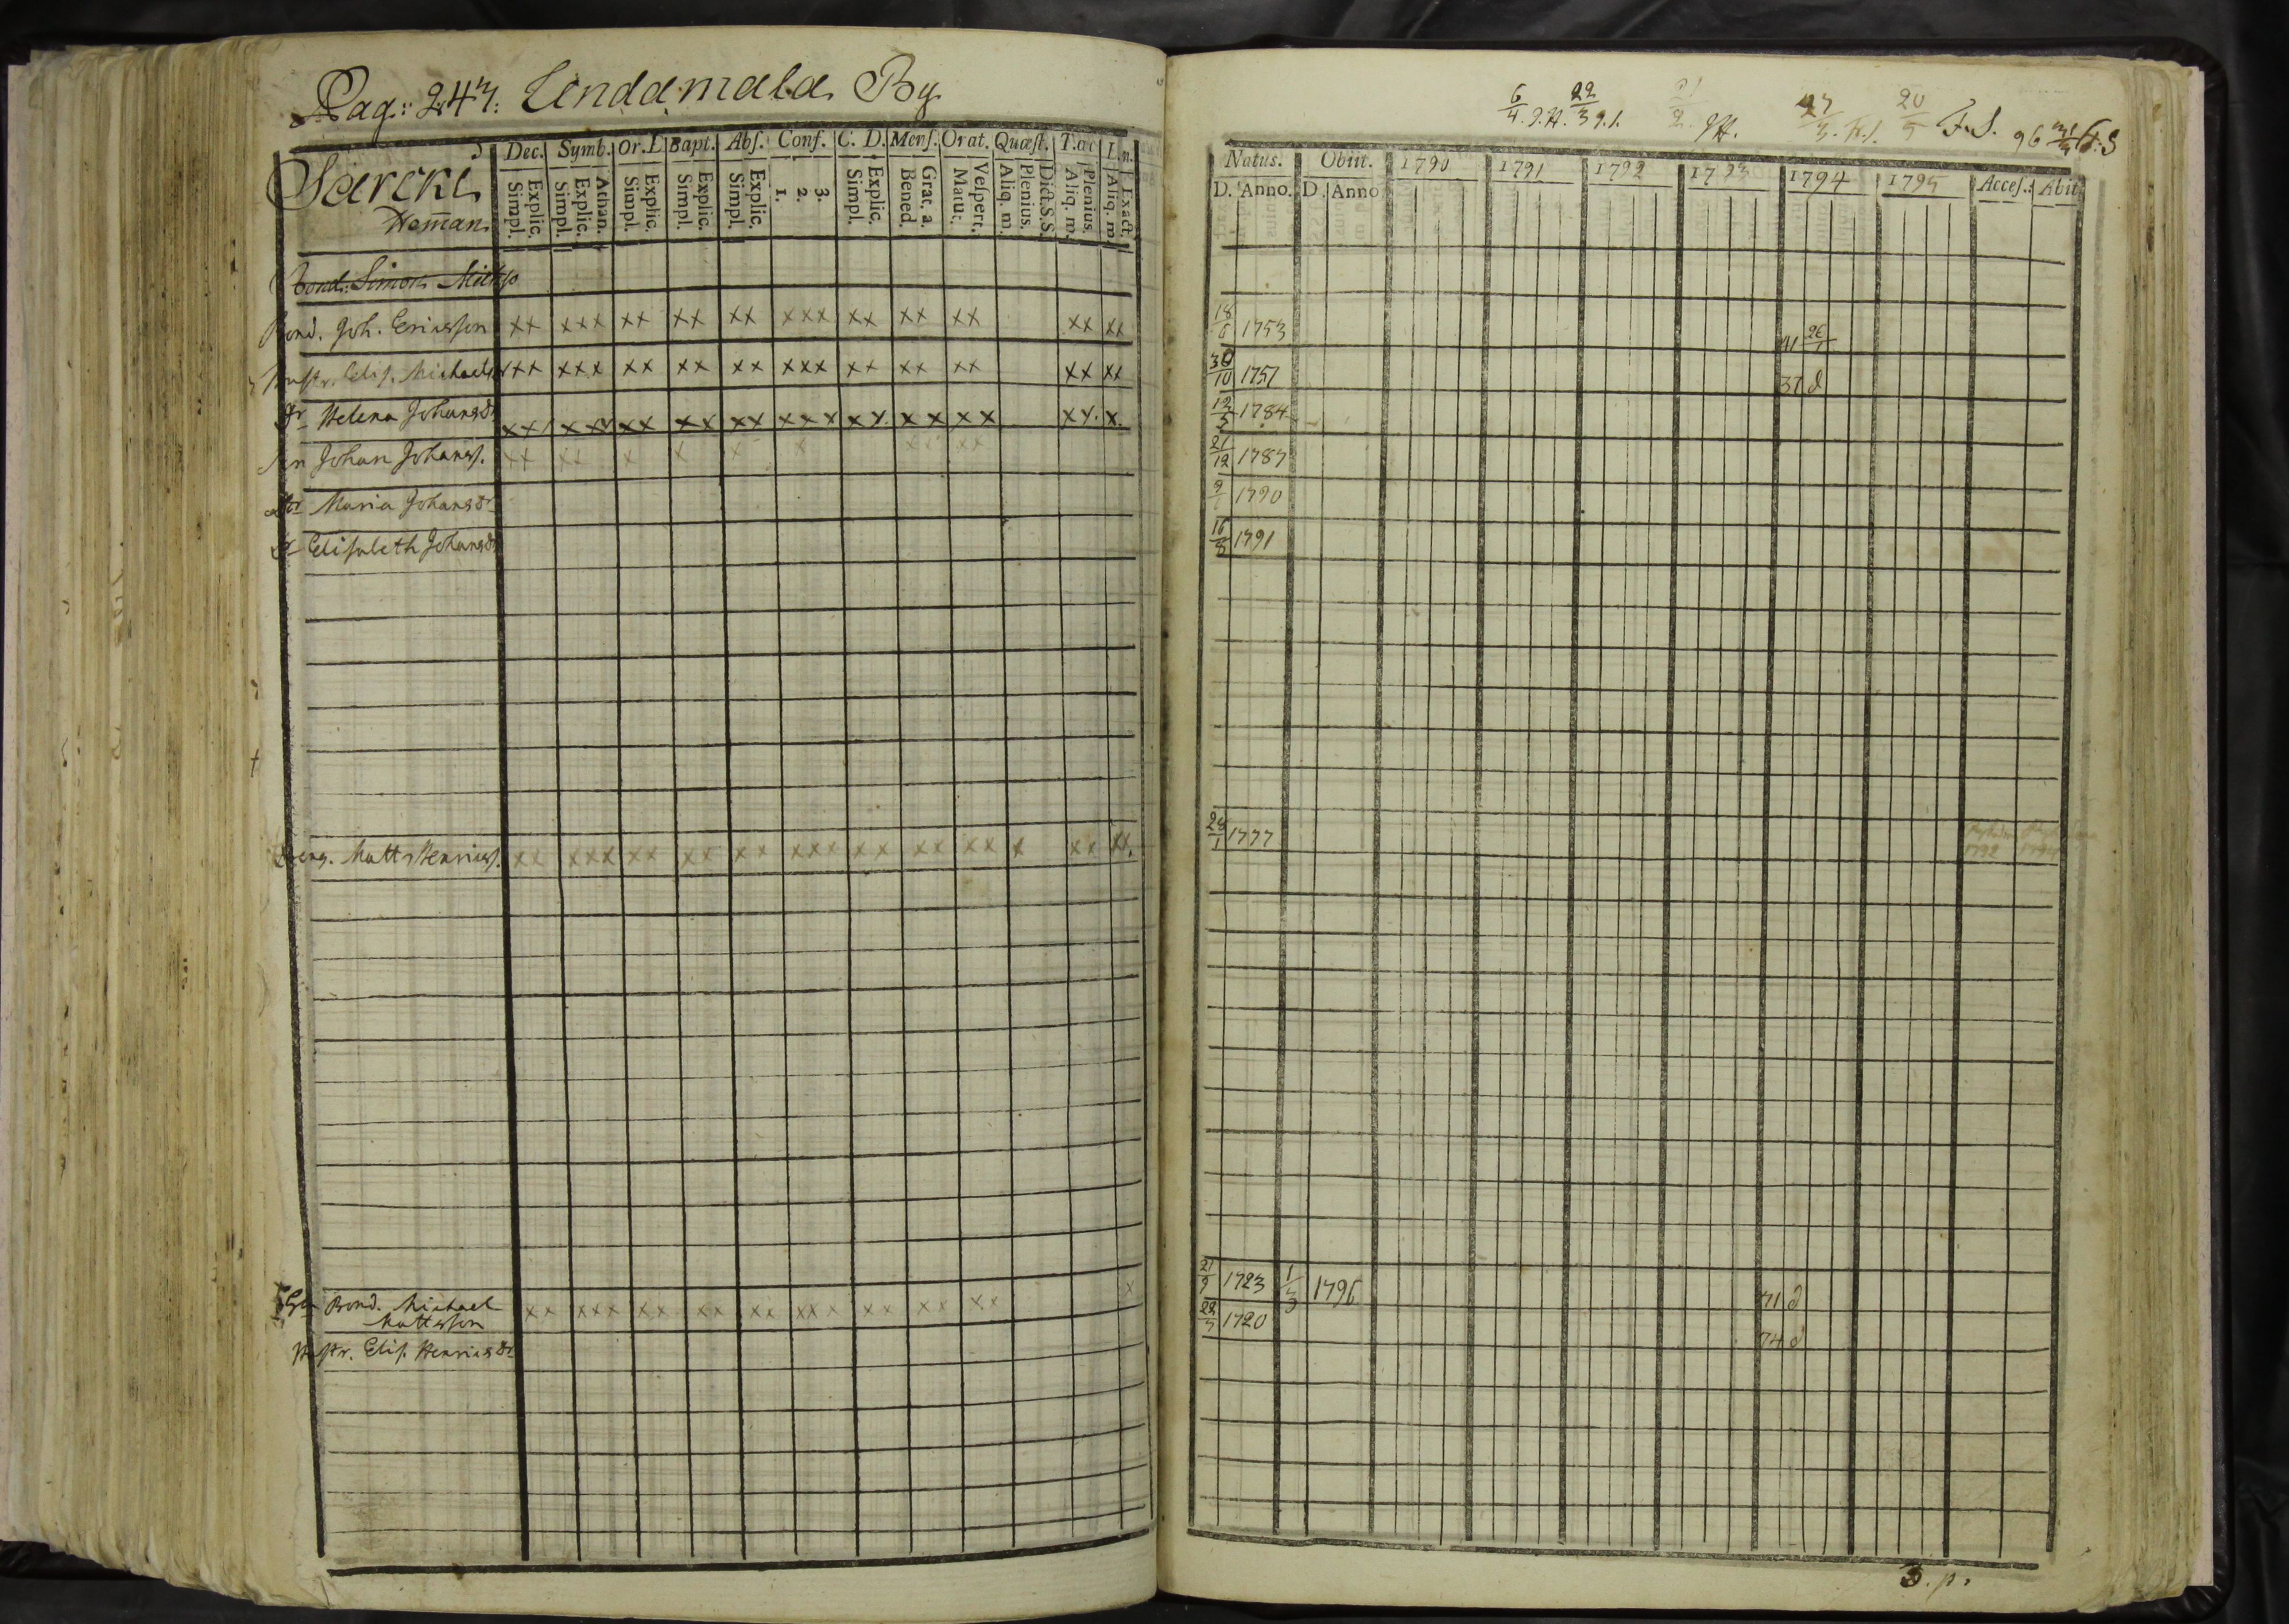 Pag: 243: Lendamala By
Särcki
Heman
Dec. Symb. Or. D Bapt. Abs. Conf. C. D. Mens. Orat. Quæst. T. æc L. n.
Explic. Simpl. Athan. Explic. Simpl. Explic. Simpl. Explic. Simpl. Explic. Simpl. 3. 2. 1. Explic. Simpl. Grat. a. Bened. Vespert. Matut. Dict. S.S. Plenius. Aliq. m. Plenius. Aliq. m. Exact. Aliq. m
Bond. Simon Mickso
Bond. Joh. Ericsson xx xxx xx xx xx xxx xx xx xx xx xx
Hustr. Elis. Michaels xxx xxx xx xx xx xxx xx xx xx xx xx
dr Helena Johansdr xxx xxx xx xx xx xxx xx xx xx xx. x.
Sn Johan Johanss. xx xx x x x x xx xx
dr Maria Johansdr
dr Elisabeth Johansdr
Dreng. Matts Henricss. xx xxx xx xx xx xxx xx xx xx x xx xx.
Bond. Michael
Mattsson xx xxx xx xx xx xxx xx xx xx x
Hustr. Elis. Henricsdr
6/4. J.H. 22/3 J.I. J.H. 27/3. 20/5 F.S. 96 F:S
Natus. Obiit. 1790 1791 1792 1793 1794 1795 Acces. Abiit
D. Anno. D. Anno
18/6 1753 41 26/1
30/10 1757 37 d
12/5 1784
21/12 1787
9/1 1790
16/8 1791
28/1 1777 1792 1794
21/9 1723 1/3 1796 71 d
28/7 1720 74 d
3. p.